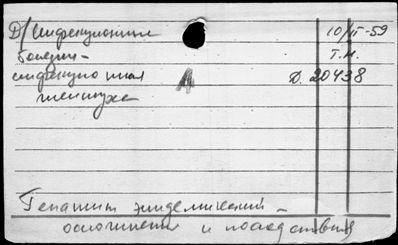 Д/Инфекционные 10/II-59
болезни- Т.М.
инфекционная А Д. 20438
желтуха
Гепатит эпидемический -
осложнения и последствия